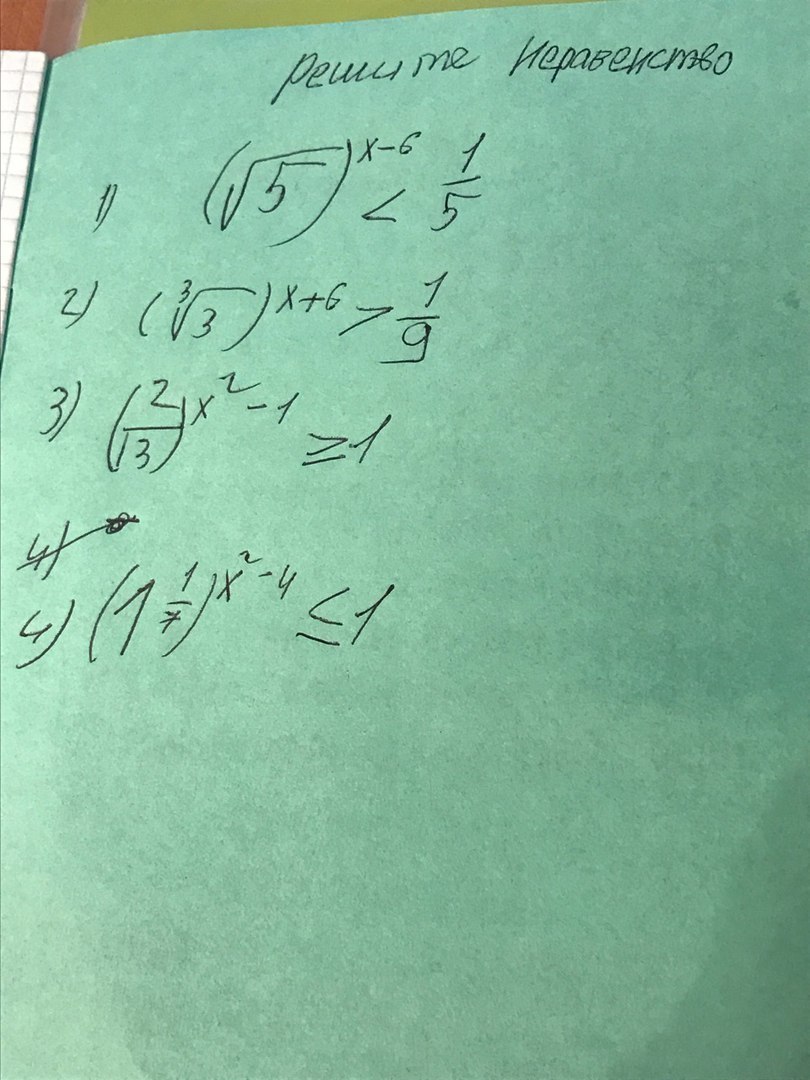 Решите неравенство
1) (√5)^{x-6} < 1/5
2) (∛3)^{x+6} > 1/9
3) (2/3)^{x^2-1} ≥ 1
4)
4) (1 1/7)^{x^2-4} ≤ 1